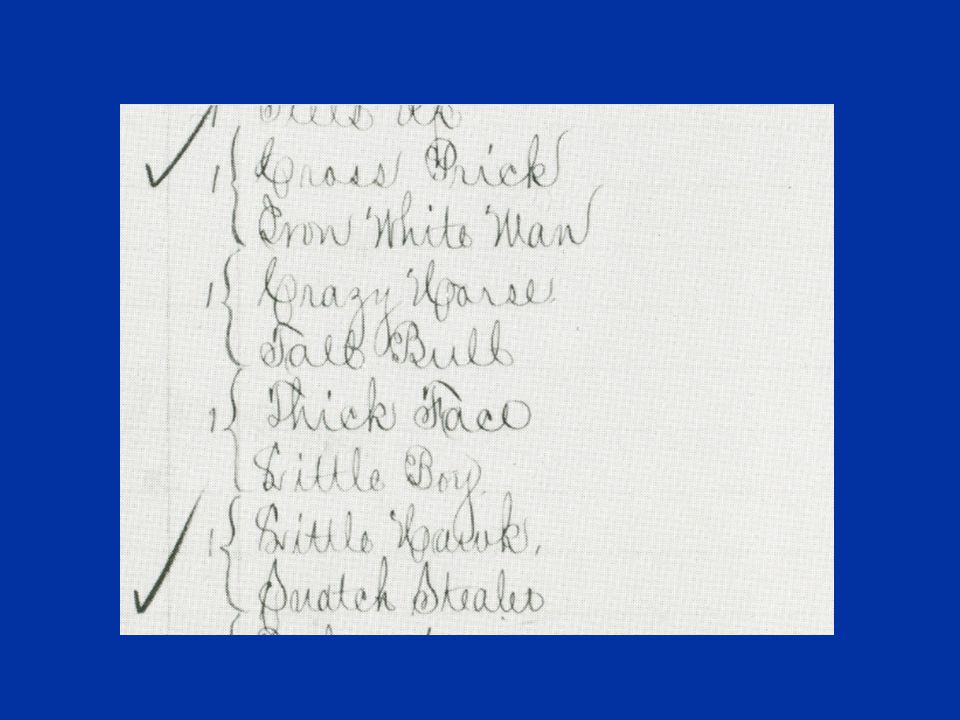 1 { Cross Prick
Iron White Man
1 { Crazy Horse
Tall Bull
1 { Thick Face
Little Boy
1 { Little Hawk.
Snatch Stealer